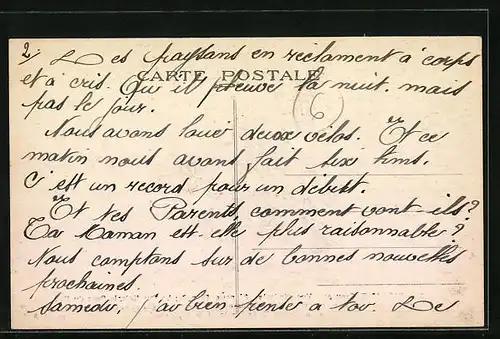 2. Les paysans en réclament à corps
CARTE POSTALE
et à cris. Qu'il pleuve la nuit. mais
6
pas le jour.
Nous avons loué deux vélos. Et ce
matin nous avons fait six kms.
C'est un record pour un début.
Et tes Parents, comment vont-ils?
Ta Maman est-elle plus raisonnable?
Nous comptons sur de bonnes nouvelles
prochaines.
Samedi, j'ai bien pensé à toi. Le